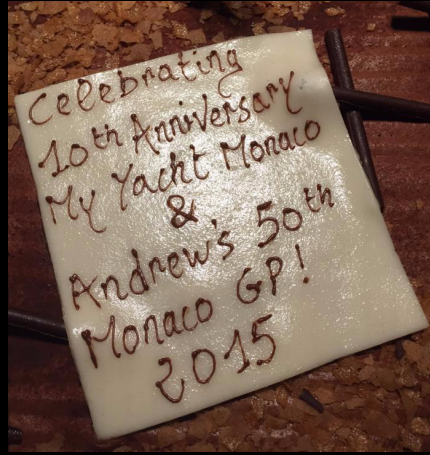 Celebrating
10th Anniversary
My Yacht Monaco
&
Andrew's 50th
Monaco GP!
2015